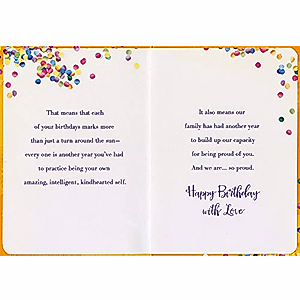 That means that each
of your birthdays marks more
than just a turn around the sun—
every one is another year you've had
to practice being your own
amazing, intelligent, kindhearted self.
It also means our
family has had another year
to build up our capacity
for being proud of you.
And we are... so proud.
Happy Birthday
with Love